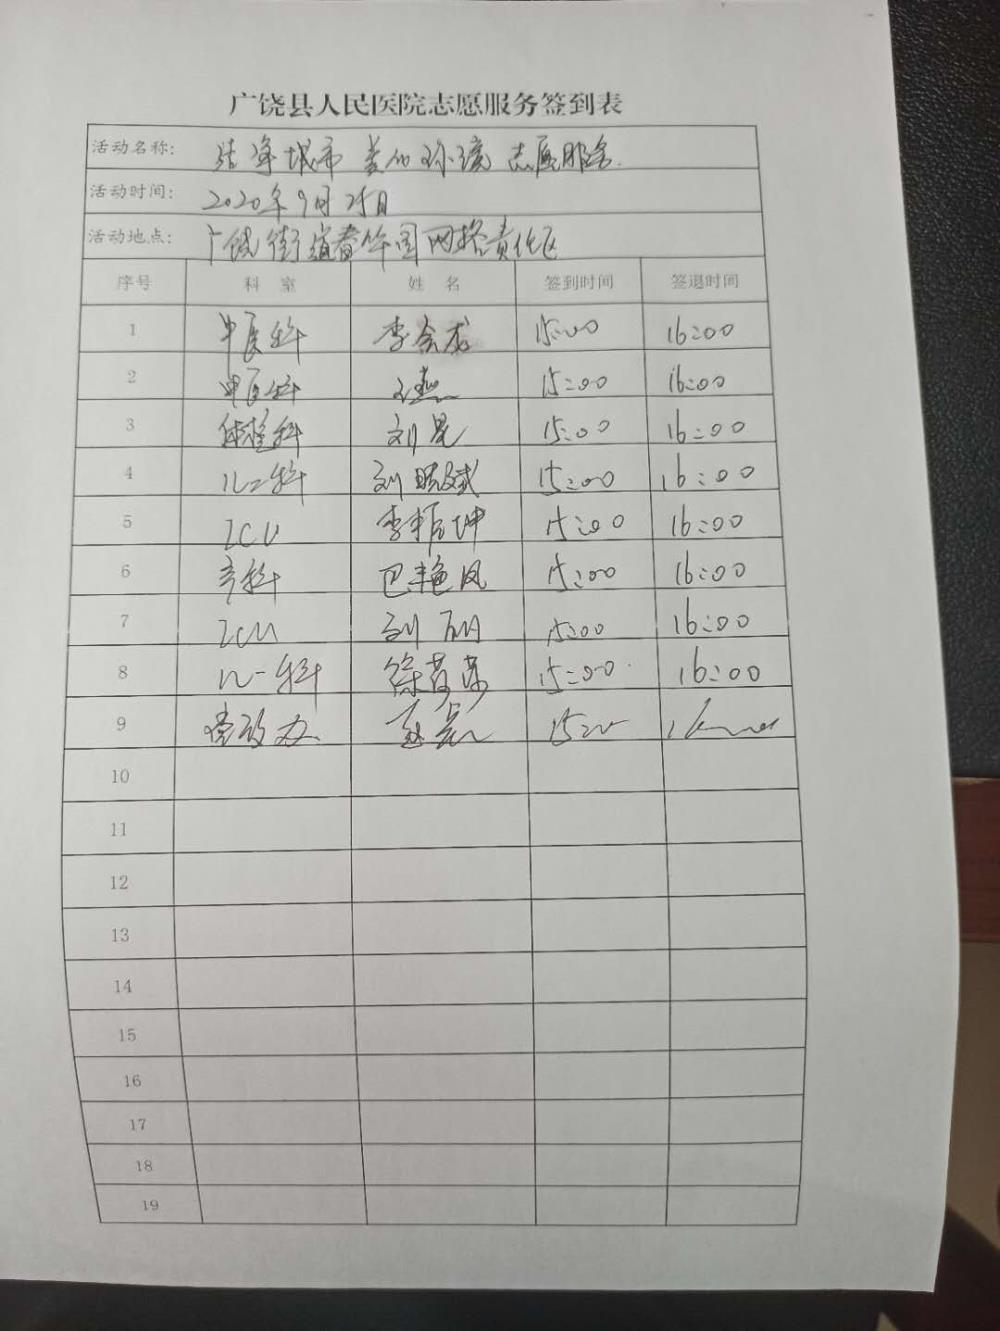 广饶县人民医院志愿服务签到表
活动名称: 洁净城市 美化环境 志愿服务
活动时间: 2020年9月25日
活动地点: 广饶街道春华园网格责任区
序号 科室 姓名 签到时间 签退时间
1 中医科 李会龙 15:00 16:00
2 中医科 王燕 15:00 16:00
3 体检科 刘昆 15:00 16:00
4 儿二科 刘 斌 15:00 16:00
5 ICU 李振坤 15:00 16:00
6 产科 巴艳凤 15:00 16:00
7 ICU 刘丽 15:00 16:00
8 儿一科 徐 15:00 16:00
9 党政办
10
11
12
13
14
15
16
17
18
19